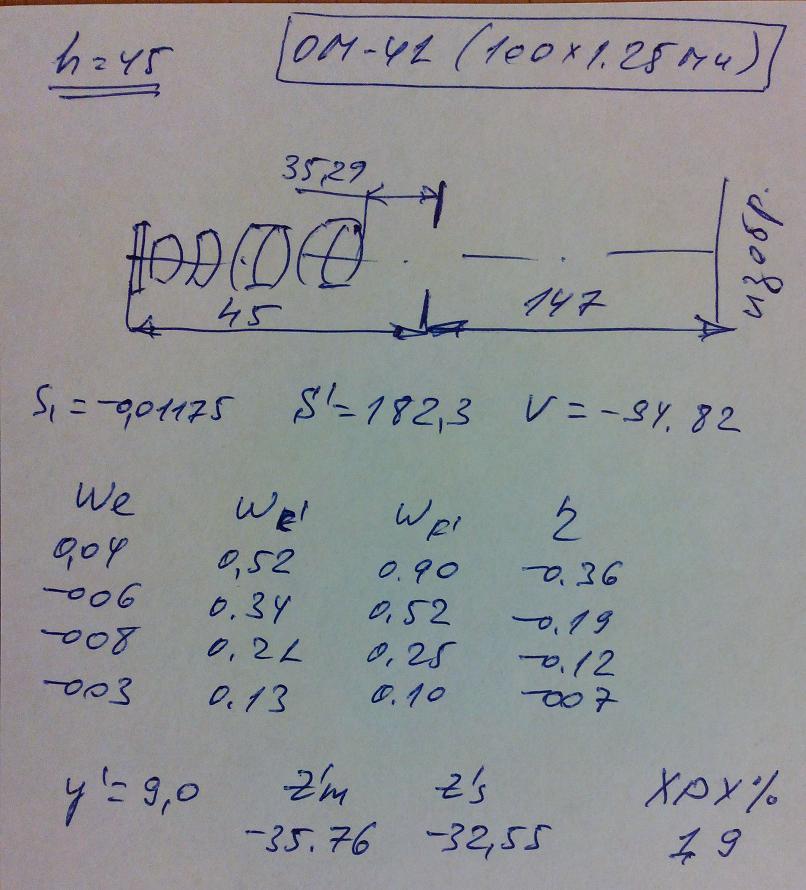 h=45 ОМ-41 (100×1.25 Ми)
35,29
45 147 изобр.
S₁ = -0,01175 S' = 182,3 V = -94.82
We We' Wp' η
0,04 0,52 0.90 -0.36
-006 0.34 0,52 -0.19
-008 0.21 0,25 -0.12
-003 0.13 0.10 -007
y' = 9,0 Z'm Z's ХРХ%
-35.76 -32,55 1,9